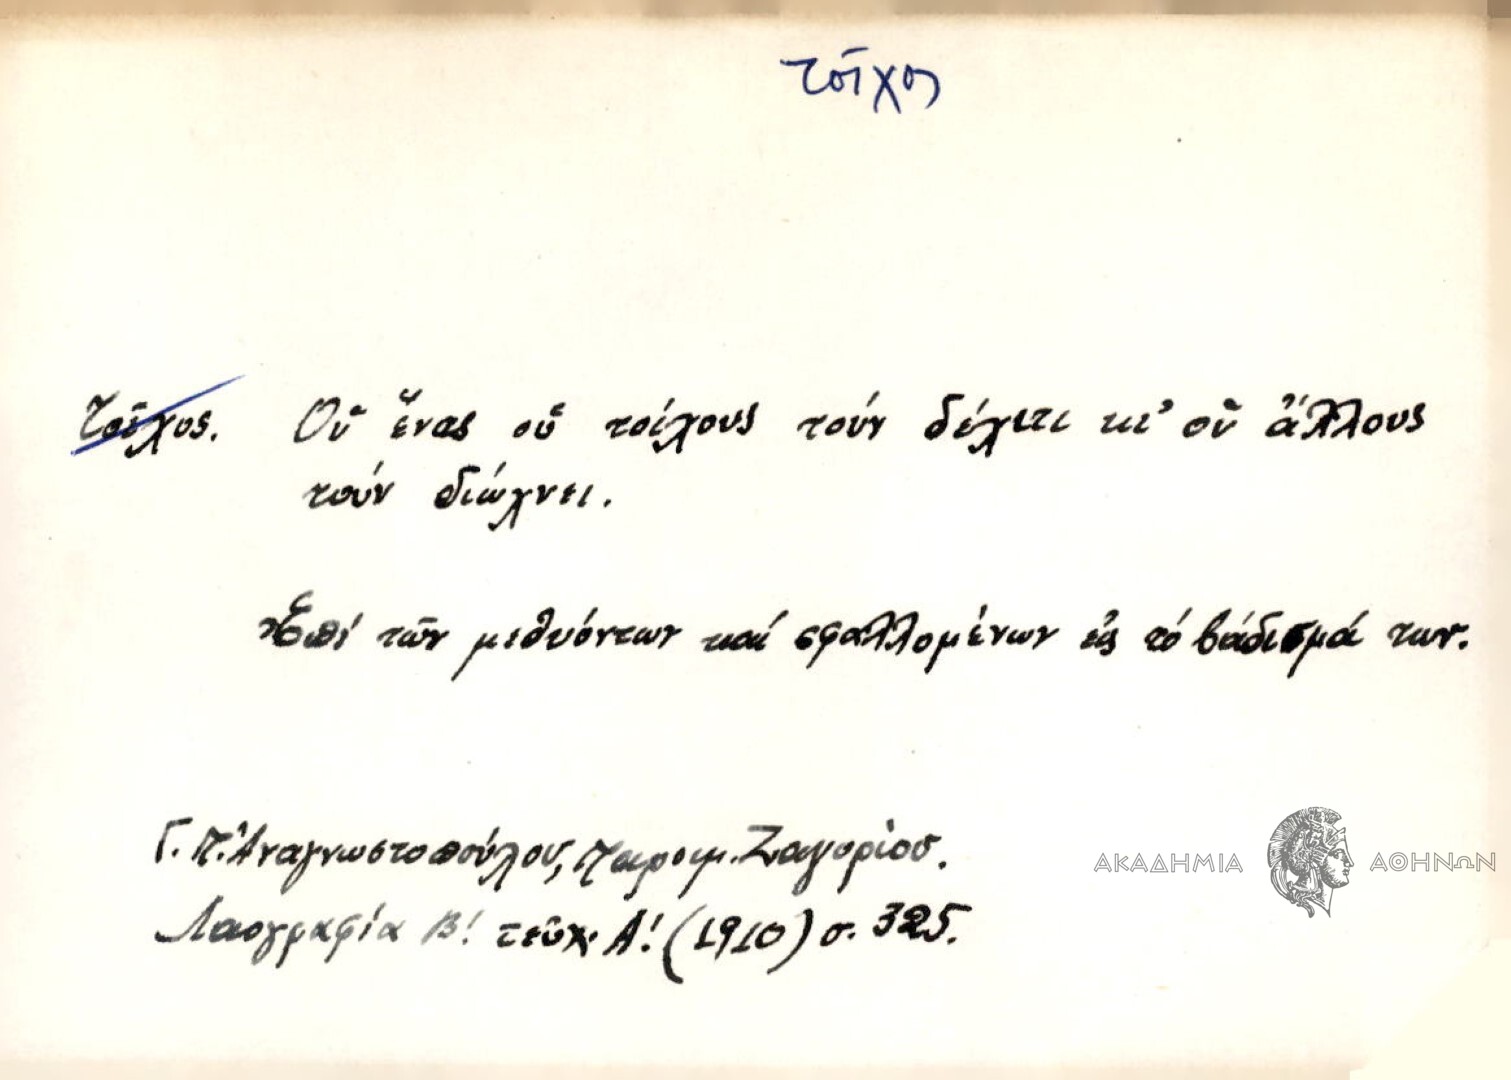 τοῖχος
Τοῖχος. Οὗ ἕνας οὗ τοίχους τούν δέχιτι κι' οὗ ἄλλους
τούν διώχνει.
Ἐπί τῶν μεθυόντων καί σφαλλομένων εἰς τό βάδισμά των.
Γ. Π. Ἀναγνωστοπούλου, Παροιμ. Ζαγορίου.
Λαογραφία Β! τεῦχ. Α! (1910) σ. 325.
ΑΚΑΔΗΜΙΑ ΑΘΗΝΩΝ